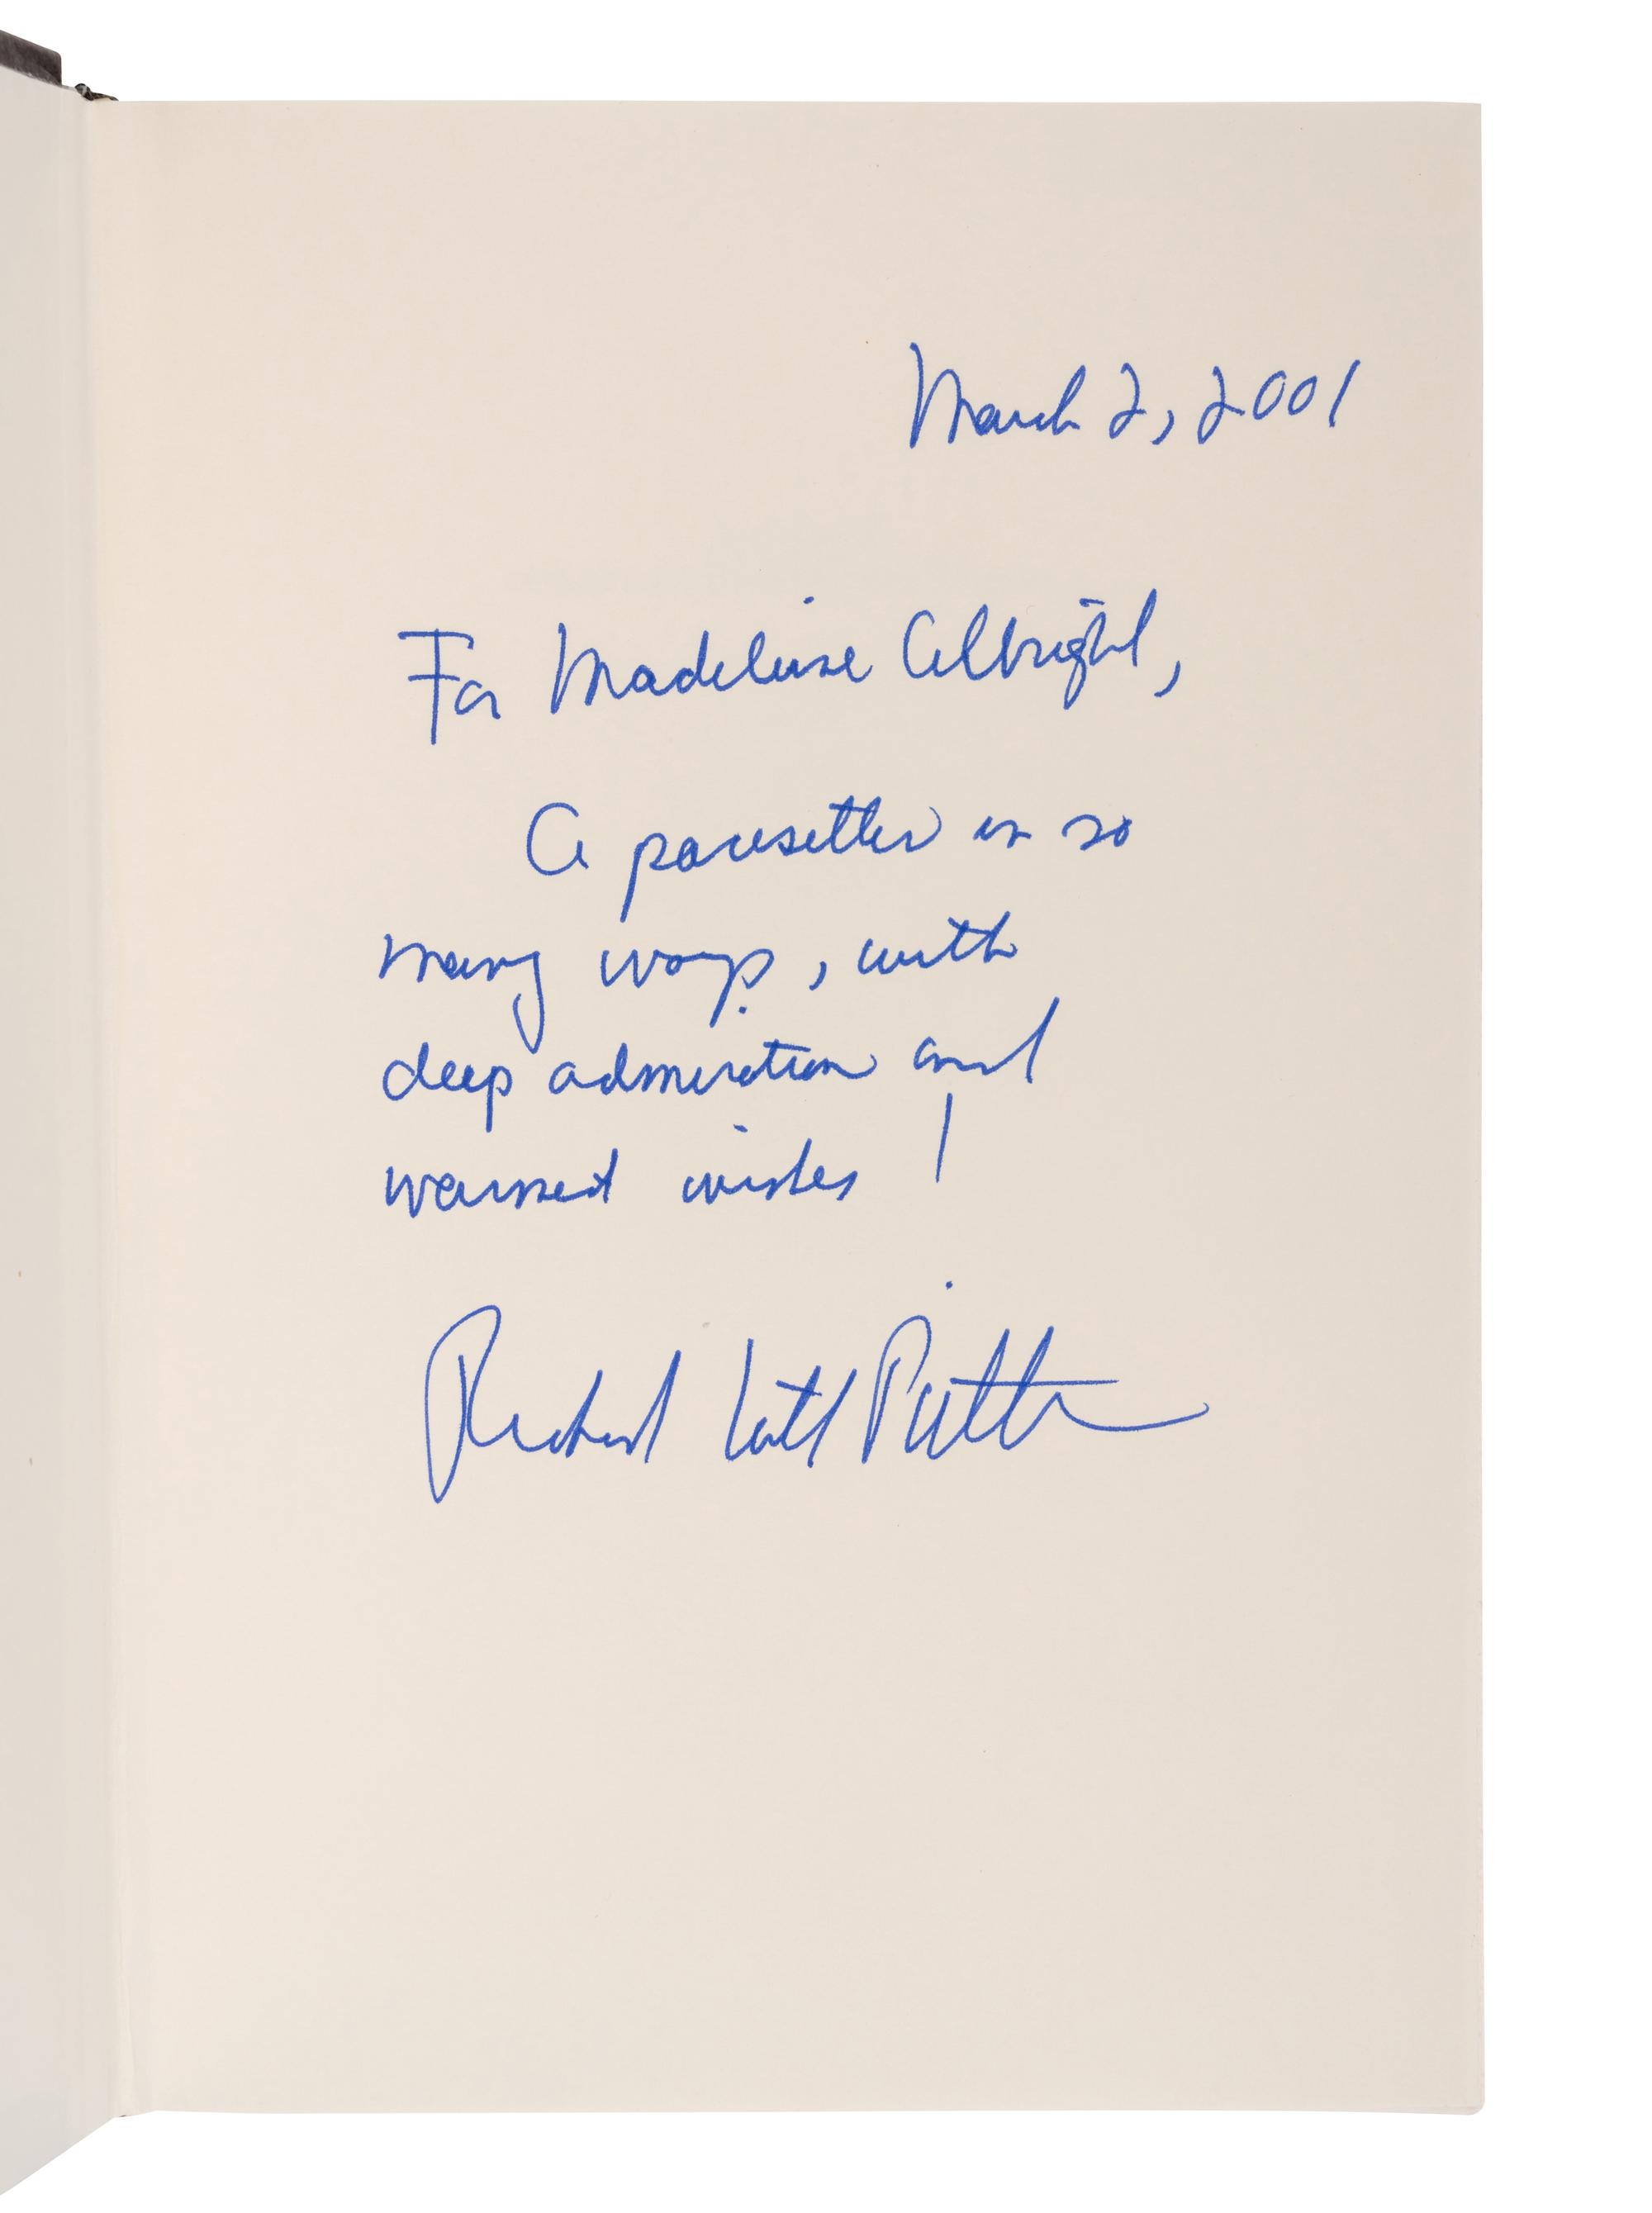 March 2, 2001
For Madeleine Albright,
A pacesetter in so
many ways, with
deep admiration and
warmest wishes!
Richard